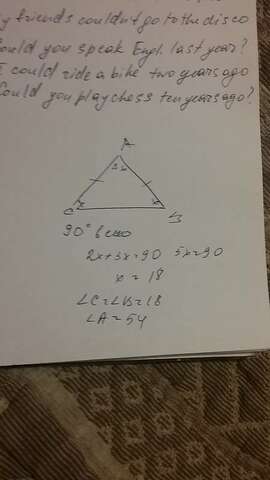 y friends couldn't go to the disco
Could you speak Engl. last year?
I could ride a bike two years ago
Could you play chess ten years ago?
A
3x
C
x
x
B
90° всего
2x+3x=90 5x=90
x = 18
∠C=∠B=18
∠A=54